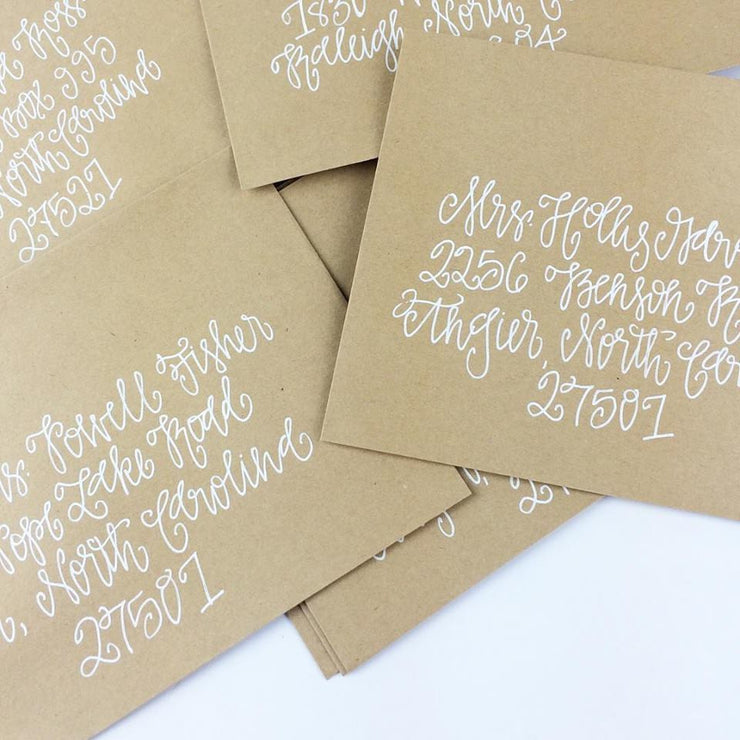 Ross
Box 995
North Carolina
27527
1830
Raleigh, North C
Mrs. Holly
2256 Benson R
Angier, North Car
27501
s. Powell Fisher
Pope Lake Road
, North Carolina
27501